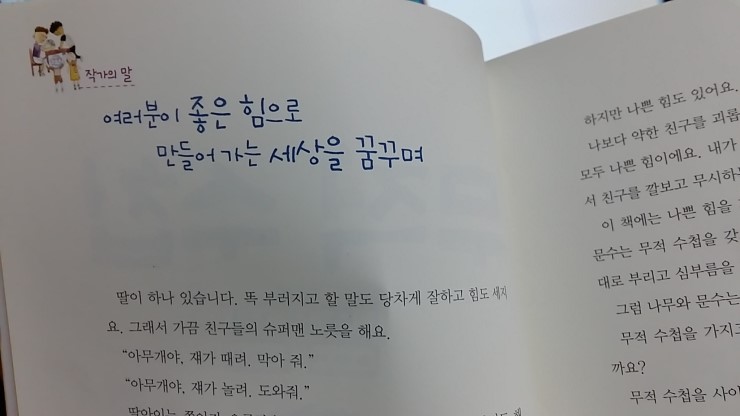 작가의 말
여러분이 좋은 힘으로
만들어 가는 세상을 꿈꾸며
딸이 하나 있습니다. 똑 부러지고 할 말도 당차게 잘하고 힘도 세지
요. 그래서 가끔 친구들의 슈퍼맨 노릇을 해요.
“아무개야. 쟤가 때려. 막아 줘.”
“아무개야. 쟤가 놀려. 도와줘.”
하지만 나쁜 힘도 있어요.
나보다 약한 친구를 괴롭
모두 나쁜 힘이에요. 내가
서 친구를 깔보고 무시하는
이 책에는 나쁜 힘을
문수는 무적 수첩을 갖
대로 부리고 심부름을
그럼 나무와 문수는
무적 수첩을 가지고
까요?
무적 수첩을 사이